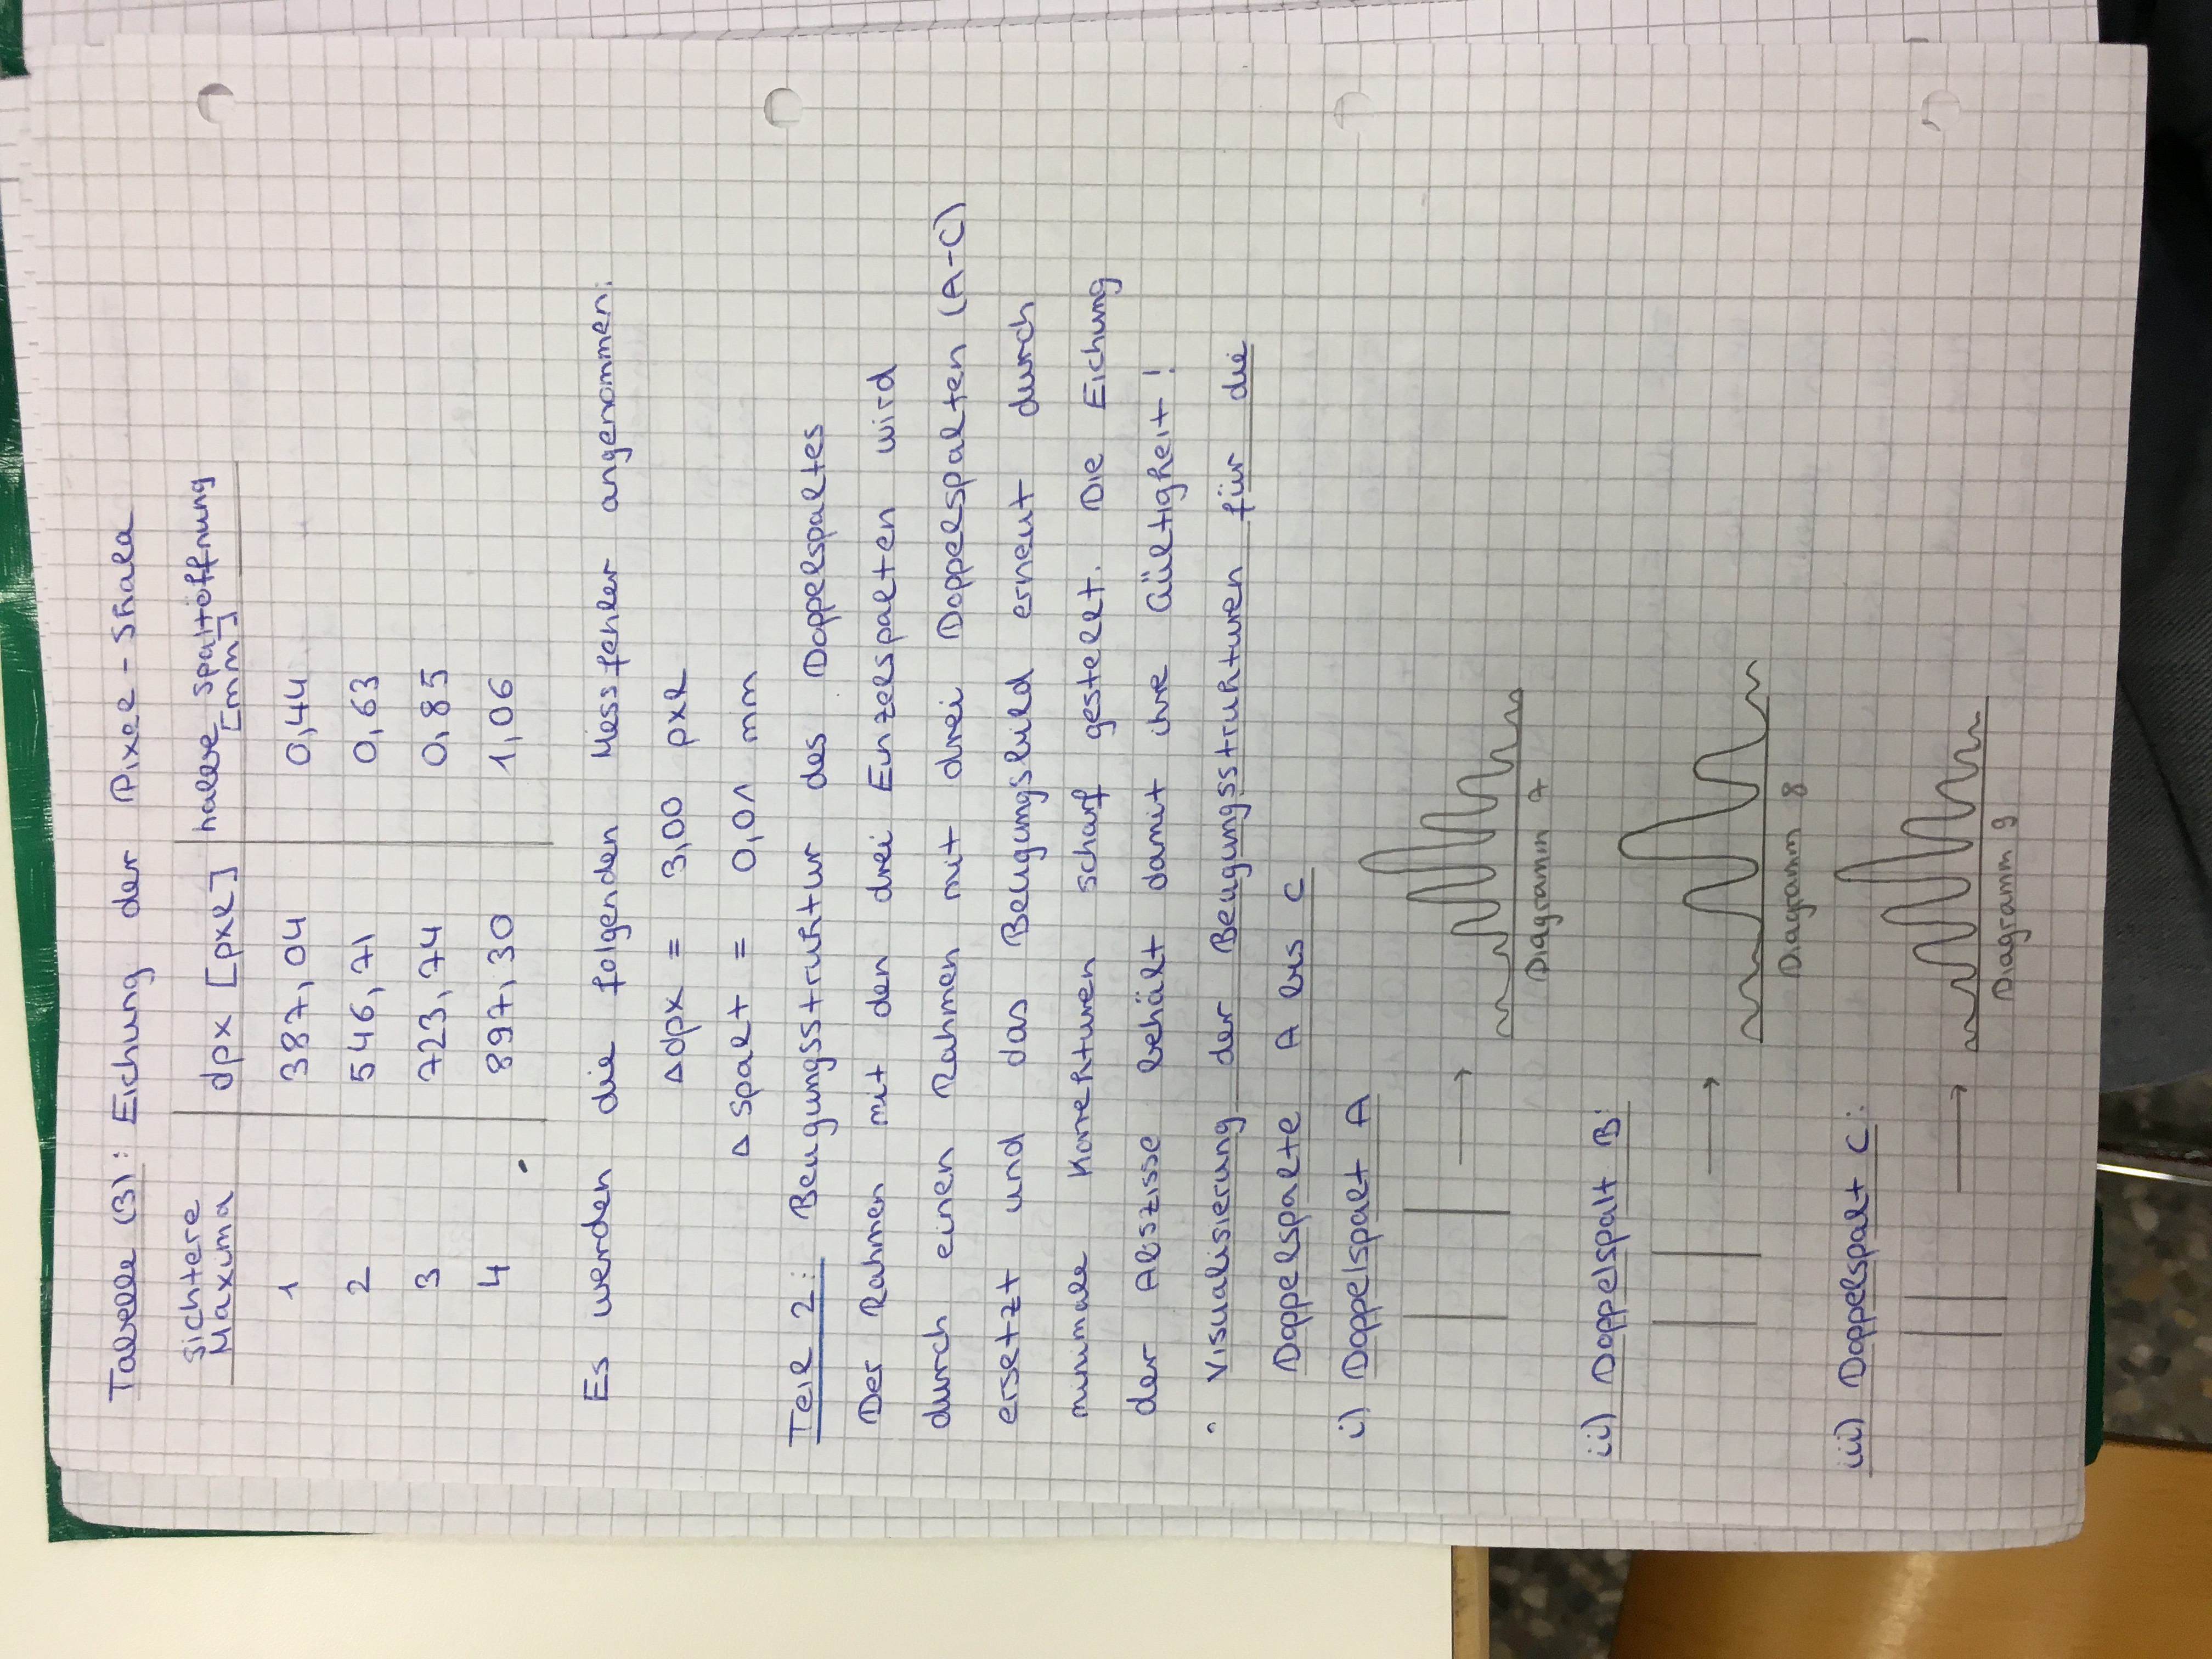 Tabelle (3): Eichung der Pixel-Skala
sichtbare Maxima | dpx [pxl] | halbe Spaltöffnung [mm]
1 | 387,04 | 0,44
2 | 546,71 | 0,63
3 | 723,74 | 0,85
4 | 897,30 | 1,06
Es werden die folgenden Messfehler angenommen:
Δdpx = 3,00 pxl
Δspalt = 0,01 mm
Teil 2: Beugungsstruktur des Doppelspaltes
Der Rahmen mit den drei Einzelspalten wird
durch einen Rahmen mit drei Doppelspalten (A-C)
ersetzt und das Beugungsbild erneut durch
minimale Korrekturen scharf gestellt. Die Eichung
der Abszisse behält damit ihre Gültigkeit!
• Visualisierung der Beugungsstrukturen für die
Doppelspalte A bis C
i) Doppelspalt A
Diagramm 7
ii) Doppelspalt B:
Diagramm 8
iii) Doppelspalt C:
Diagramm 9